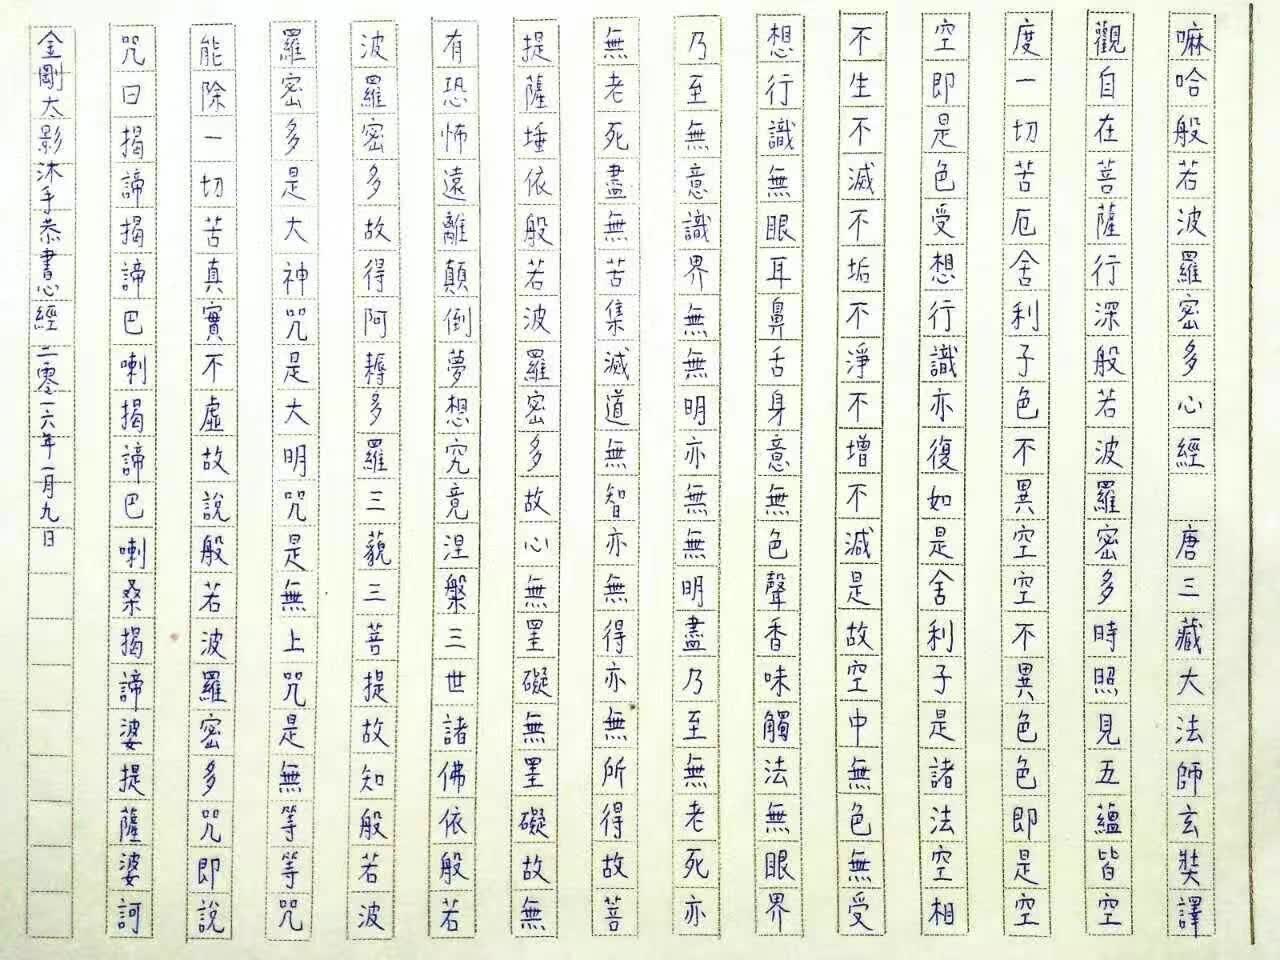 嘛哈般若波羅密多心經 唐三藏大法師玄奘譯
觀自在菩薩行深般若波羅密多時照見五蘊皆空
度一切苦厄舍利子色不異空空不異色色即是空
空即是色受想行識亦復如是舍利子是諸法空相
不生不滅不垢不淨不增不減是故空中無色無受
想行識無眼耳鼻舌身意無色聲香味觸法無眼界
乃至無意識界無無明亦無無明盡乃至無老死亦
無老死盡無苦集滅道無智亦無得亦無所得故菩
提薩埵依般若波羅密多故心無罣礙無罣礙故無
有恐怖遠離顛倒夢想究竟涅槃三世諸佛依般若
波羅密多故得阿耨多羅三藐三菩提故知般若波
羅密多是大神咒是大明咒是無上咒是無等等咒
能除一切苦真實不虛故說般若波羅密多咒即說
咒曰揭諦揭諦巴喇揭諦巴喇桑揭諦婆提薩婆訶
金剛太影沐手恭書心經二零一六年一月九日